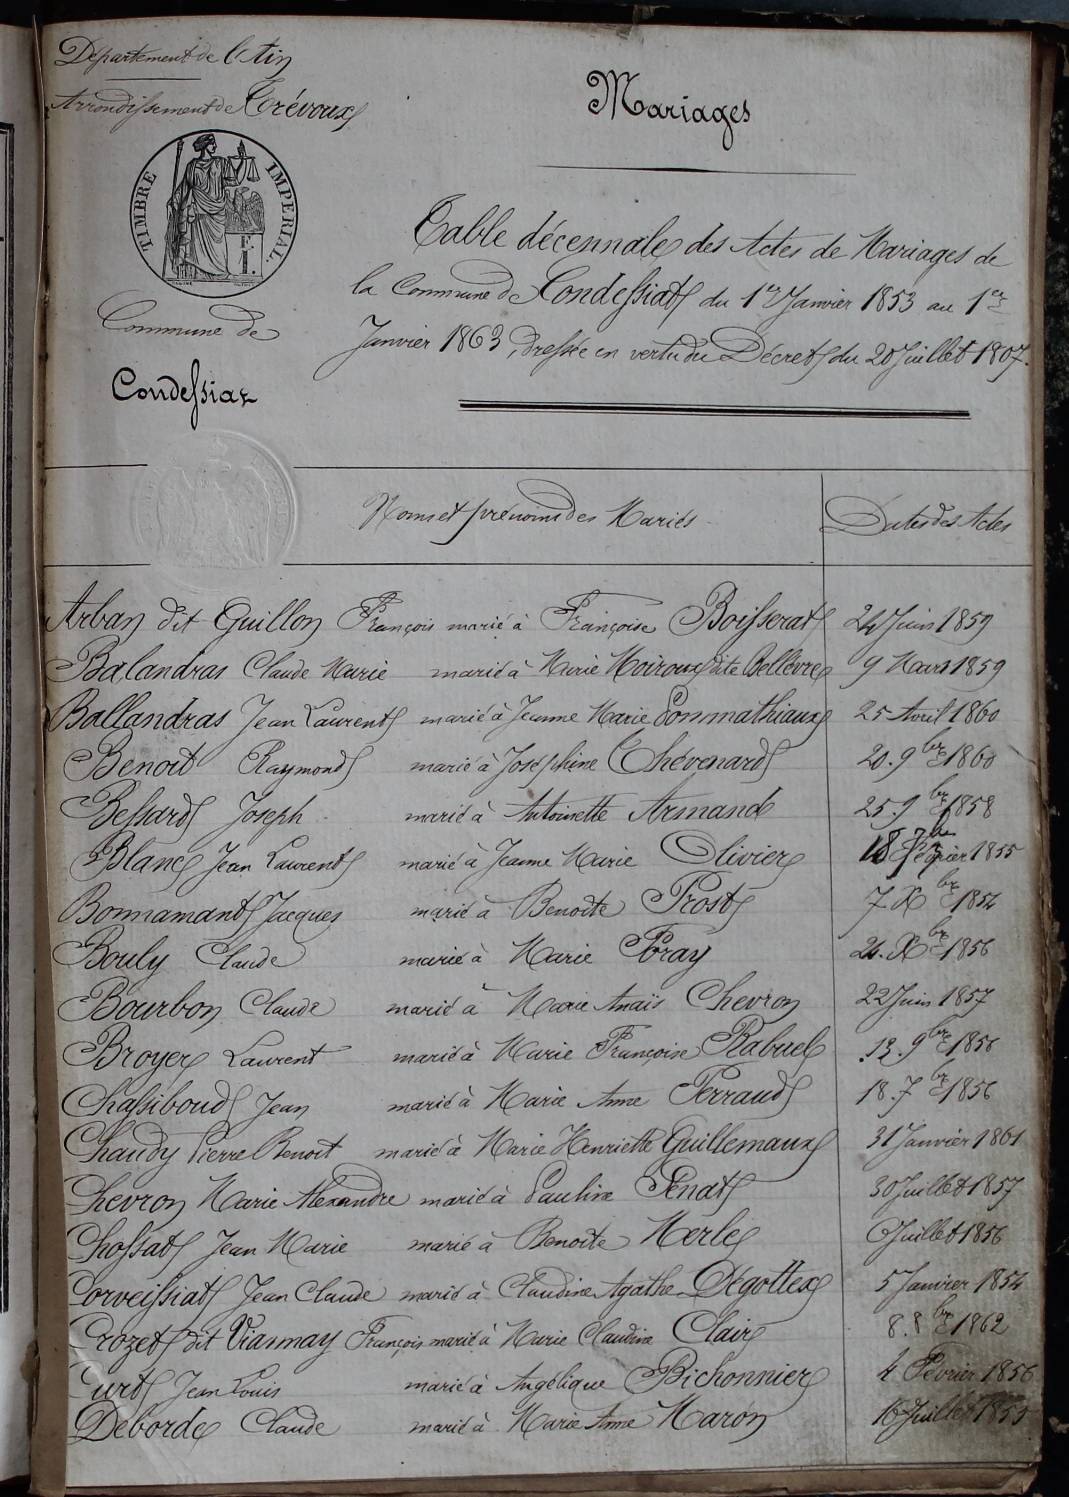 Département de l'Ain
Arrondissement de Trévoux
TIMBRE IMPERIAL.
Commune de
Condessiat
Mariages
Table décennale des Actes de Mariages de
la Commune de Condessiat du 1er Janvier 1853 au 1er
Janvier 1863, dressée en vertu du Décret du 20 Juillet 1807.
Noms et prénoms des Mariés Dates des Actes
Arban dit Guillon François marié à Françoise Boisserat 24 Juin 1859
Balandras Claude Marie marié à Marie Moiroux dite Bellevre 9 Mars 1859
Ballandras Jean Laurent marié à Jeanne Marie Pommathiaux 25 Avril 1860
Benoit Raymond marié à Joséphine Chévenard 20. 9bre 1860
Bessard Joseph marié à Antoinette Armand 25. 9bre 1858
Blanc Jean Laurent marié à Jeanne Marie Olivier 18 1855
Bonnamant Jacques marié à Benoite Prost 7 Xbre 1854
Bouly Claude marié à Marie Foray Xbre 1856
Bourbon Claude marié à Marie Anaïs Chevron 22 Juin 1857
Broyer Laurent marié à Marie Françoise Rabuel 13. 9bre 1856
Chassiboud Jean marié à Marie Anne Perraud 18. 7bre 1856
Chaudy Pierre Benoit marié à Marie Henriette Guillemaux 31 Janvier 1861
Chevron Marie Alexandre marié à Pauline Penat 30 Juillet 1857
Chossat Jean Marie marié à Benoite Merle Juillet 1856
Corveissiat Jean Claude marié à Claudine Agathe Dégottex 5 Janvier 1854
Crozet dit Vianmay François marié à Marie Claudine Clair 8. 8bre 1862
Curt Jean Louis marié à Angélique Bichonnier 4 Février 1856
Deborde Claude marié à Marie Anne Maron 16 Juillet